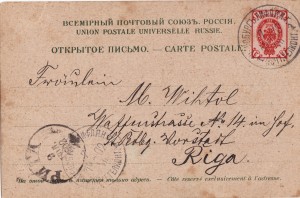 ВСЕМІРНЫЙ ПОЧТОВЫЙ СОЮЗЪ. РОССІЯ.
UNION POSTALE UNIVERSELLE RUSSIE.
ОТКРЫТОЕ ПИСЬМО. — CARTE POSTALE
Fräulein
M. Wihtol
Waffenstrasse № 14. im Hof.
St. Petbg. Vorstadt
Riga.
РИГА
На этой сторонѣ пишется только адресъ. — Côté réservé exclusivement à l'adresse.